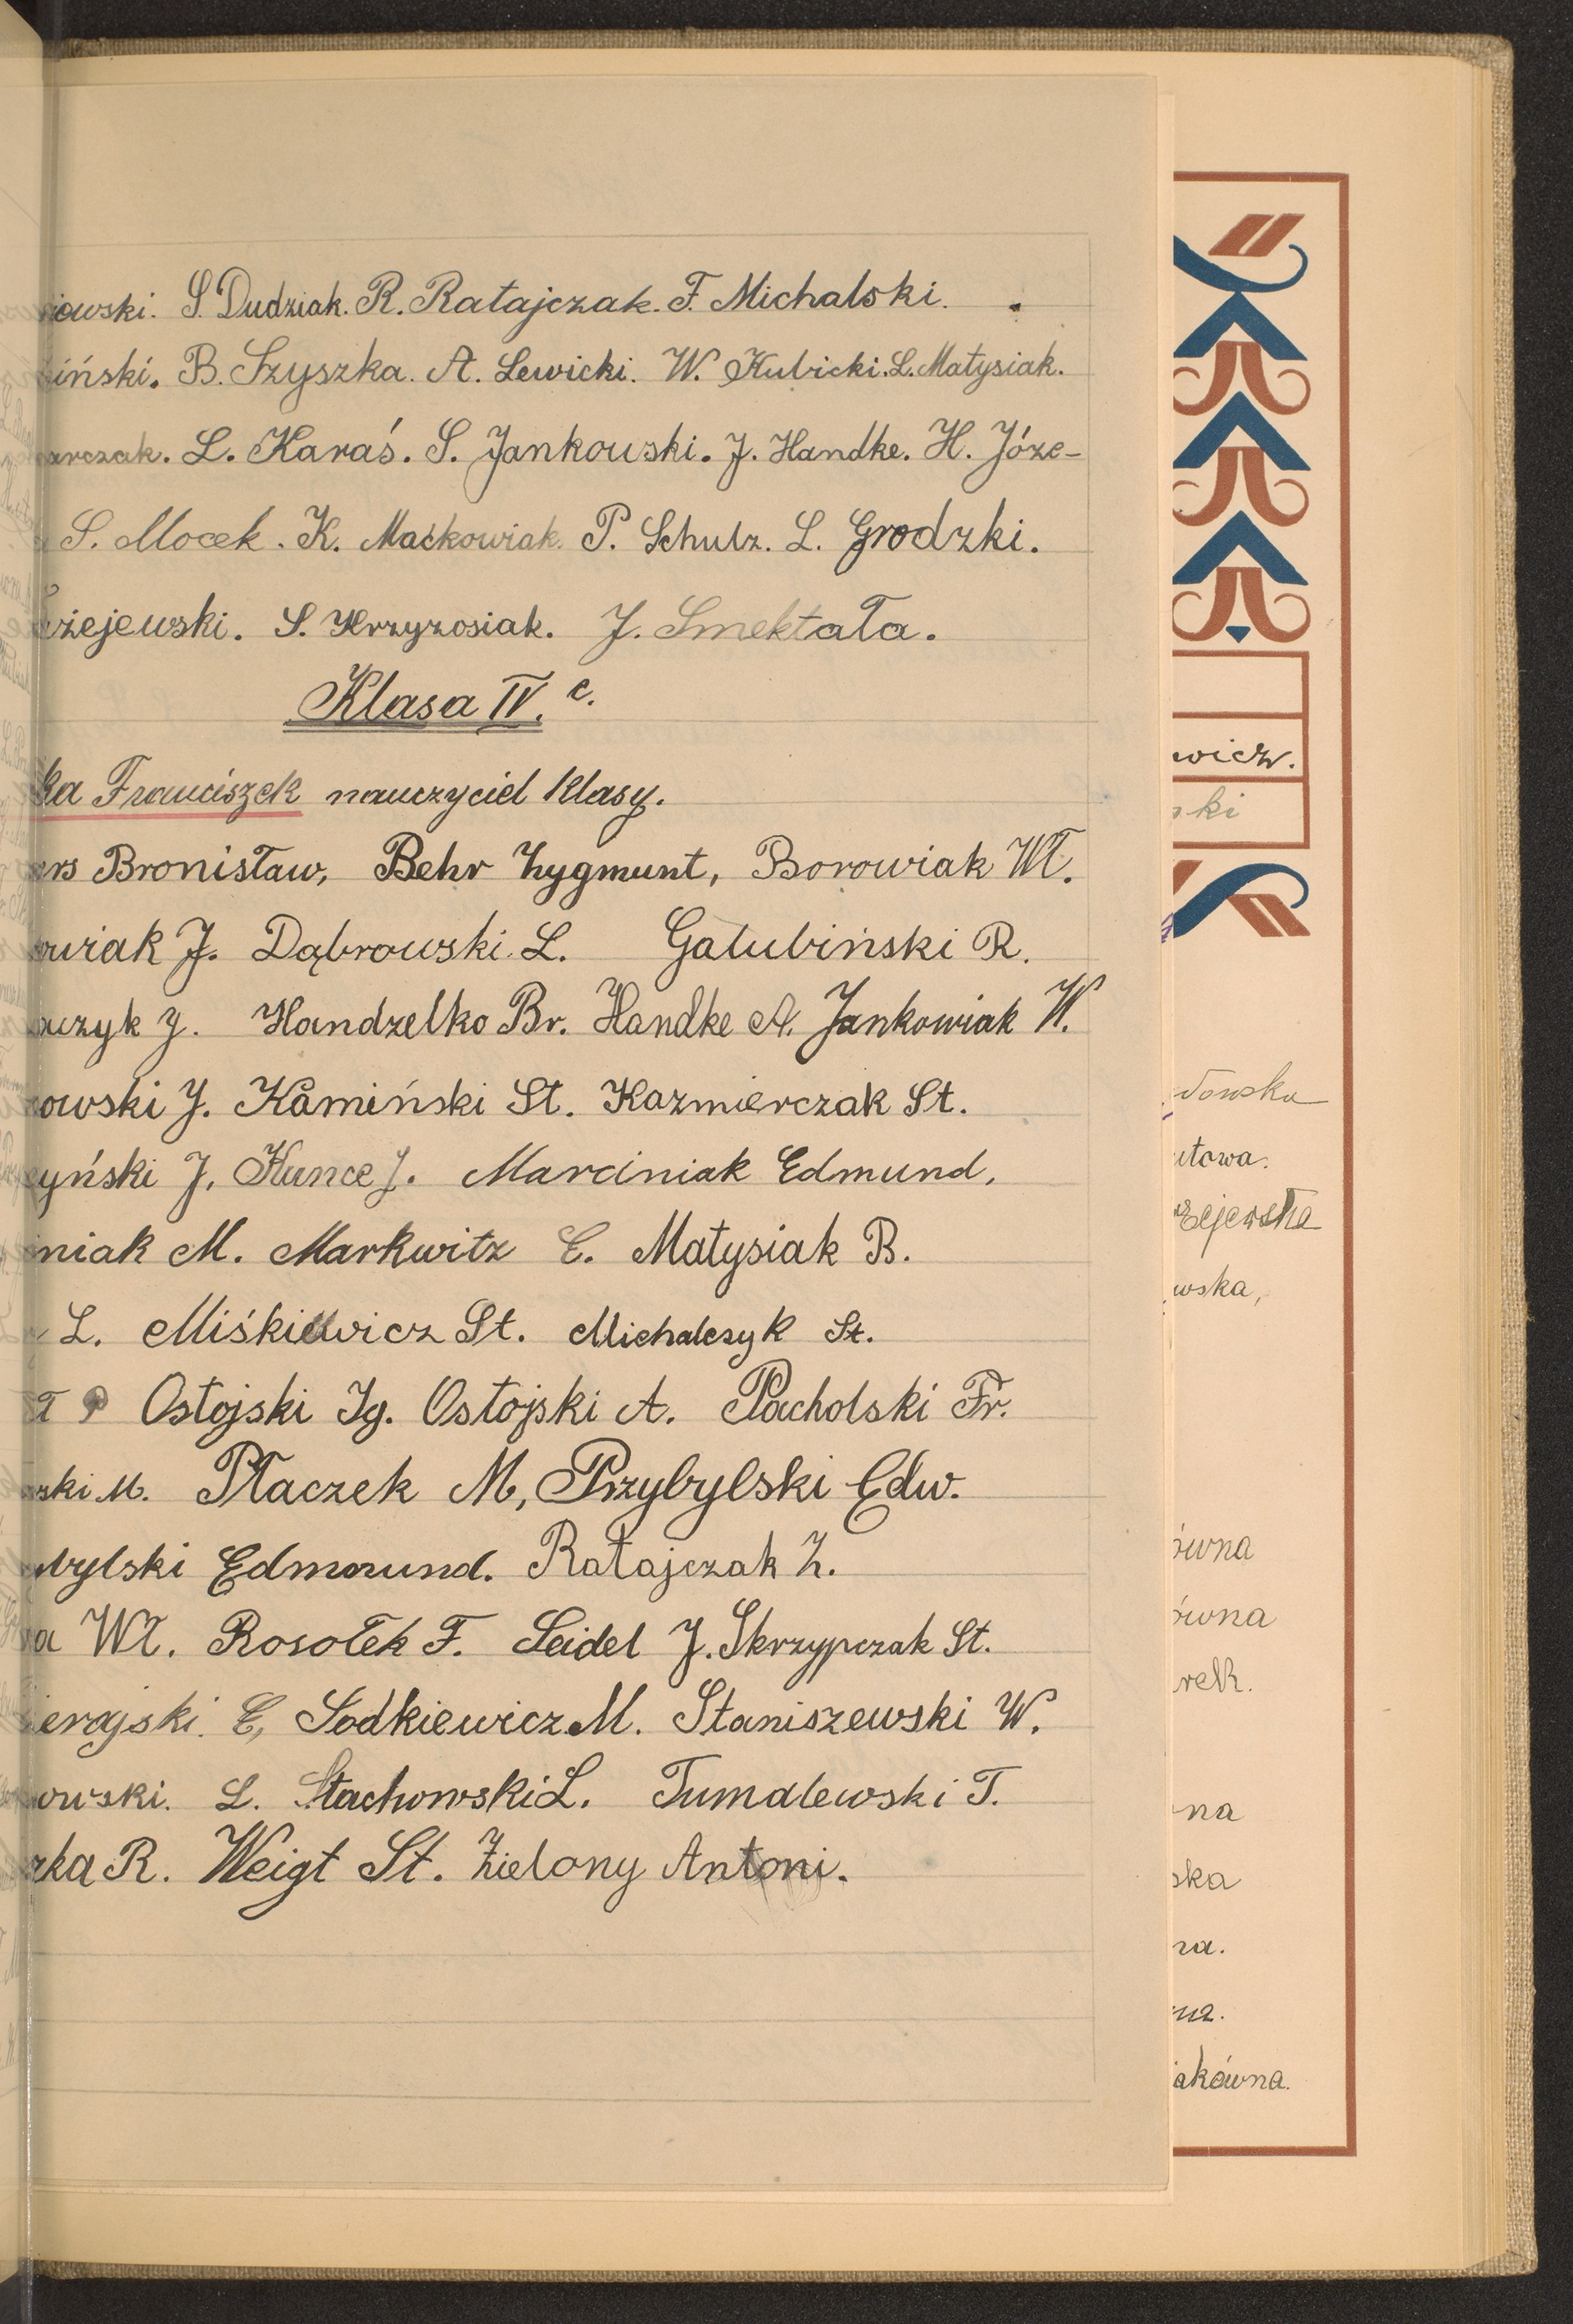 iowski. S. Dudziak. R. Ratajczak. F. Michalski.
iński. B. Szyszka. A. Lewicki. W. Kubicki. L. Matysiak.
arczak. L. Karaś. S. Jankowski. J. Handke. H. Józe-
S. Mocek. K. Maćkowiak. P. Schulz. L. Grodzki.
żejewski. S. Krzyzosiak. J. Smektała.
Klasa IV. c.
ka Franciszek nauczyciel klasy.
ers Bronisław, Behr Zygmunt, Borowiak Wł.
owiak J. Dąbrowski L. Gałubiński R.
aczyk J. Handzelko Br. Handke A. Jankowiak W.
owski J. Kamiński St. Kazmierczak St.
yński J. Kunce J. Marciniak Edmund,
niak M. Markwitz E. Matysiak B.
L. Miśkiewicz St. Michalczyk St.
Ostojski Ig. Ostojski A. Pacholski Fr.
ski M. Płaczek M, Przybylski Edw.
bylski Edmund. Ratajczak Z.
a Wł. Rosołek F. Seidel J. Skrzypczak St.
ierajski E, Sodkiewicz M. Staniszewski W.
owski. L. Stachowski L. Tumalewski T.
zka R. Weigt St. Zielony Antoni.
wicz.
ski
owska
utowa.
żejewska
wska,
ówna
ówna
rek.
na
ska
na.
akówna.